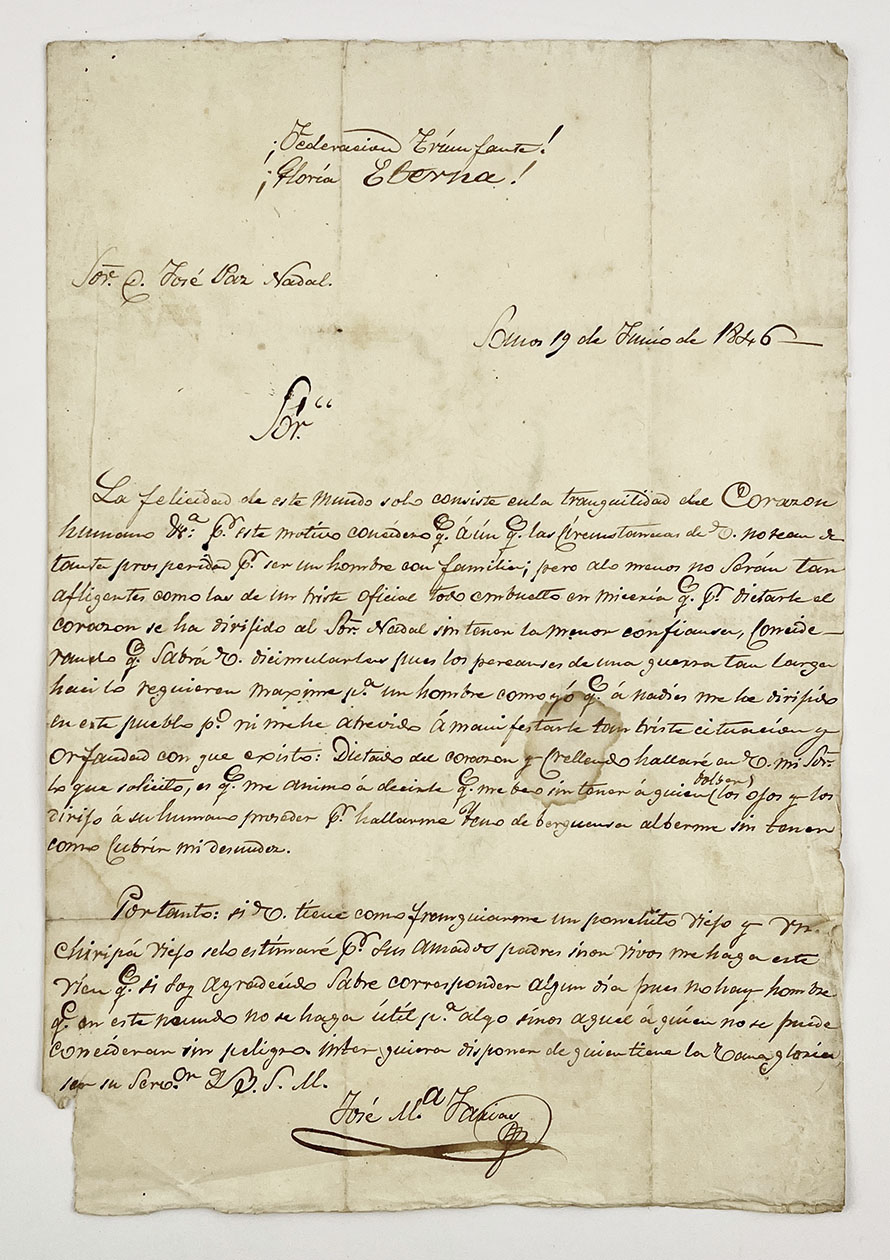 ¡Federacion Triunfante!
¡Gloria Eterna!
Sor. D. José Paz Nadal.
19 de Junio de 1846
Sor.
La felicidad de este mundo solo consiste en la tranquilidad del Corazon
humano pr. este motivo concidero q. á ún q. las Circunstancias de V. no sean de
tanta prosperidad pr. ser un hombre con familia; pero alo menos no serán tan
afligentes como las de un triste oficial todo embuelto en miceria q. pr. dictarle el
corazon se ha dirijido al Sor. Nadal sin tener la menor confiansa, Concide-
rando q. Sabrá V. dicimularlas pues los percanses de una guerra tan larga
haci lo requieren maxime pa. un hombre como yó q. á nadies me he dirijido
en este pueblo pr. ni me he atrevido á manifestarle tan triste cituacion y
orfandad con que existo: Dictado del corazon y Crellendo hallaré en V. mi Sor.
lo que solicito, es q. me animo á decirle q. me beo sin tener á quien bolber los ojos y los
dirijo á su humano proseder pr. hallarme lleno de berguensa al berme sin tener
como Cubrir mi desnudez.
Por tanto: si V. tiene como franquiarme un ponchito viejo y un
chiripá viejo selo estimaré pr. sus amados padres si son vivos me haga este
vien q. si soy agradecido sabre corresponder algun dia pues no hay hombre
q. en este mundo no se haga útil pa. algo sinos aquel á quien no se puede
concideran sin peligro inter quiera disponer de quien tiene la vana gloria
ser su Servor. Q. B. S. M.
José Ma. Farias